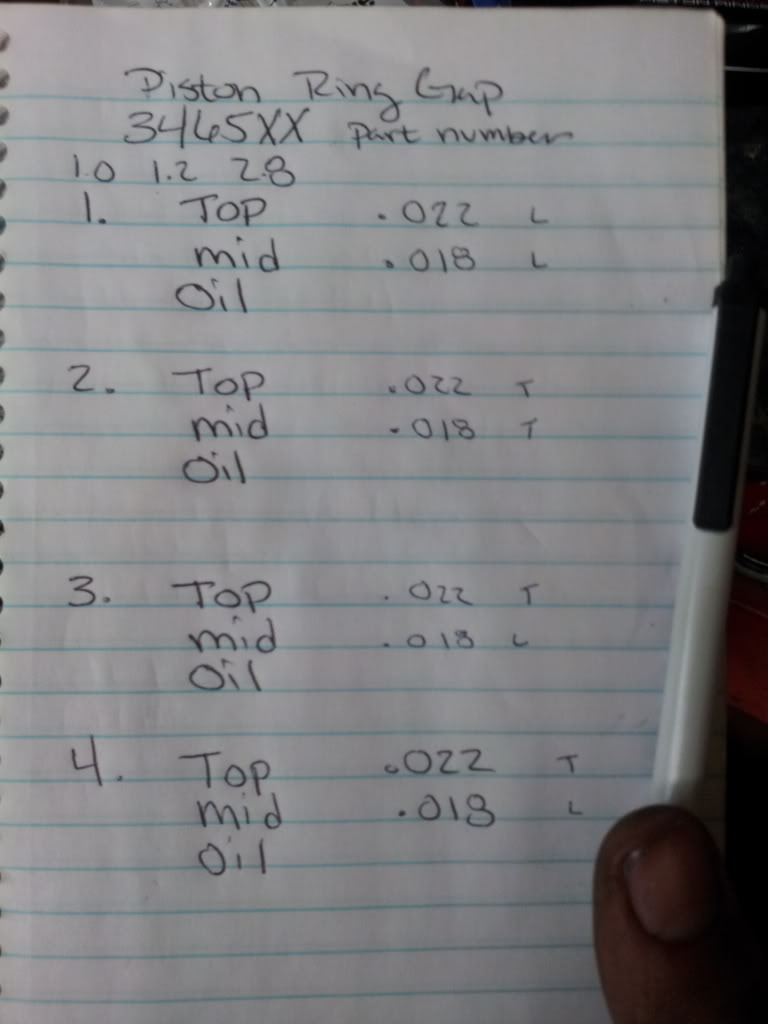 Piston Ring Gap
3465XX part number
1.0 1.2 2.8
1. TOP .022 L
mid .018 L
Oil
2. TOP .022 T
mid .018 T
Oil
3. TOP .022 T
mid .018 L
Oil
4. Top .022 T
mid .018 L
Oil